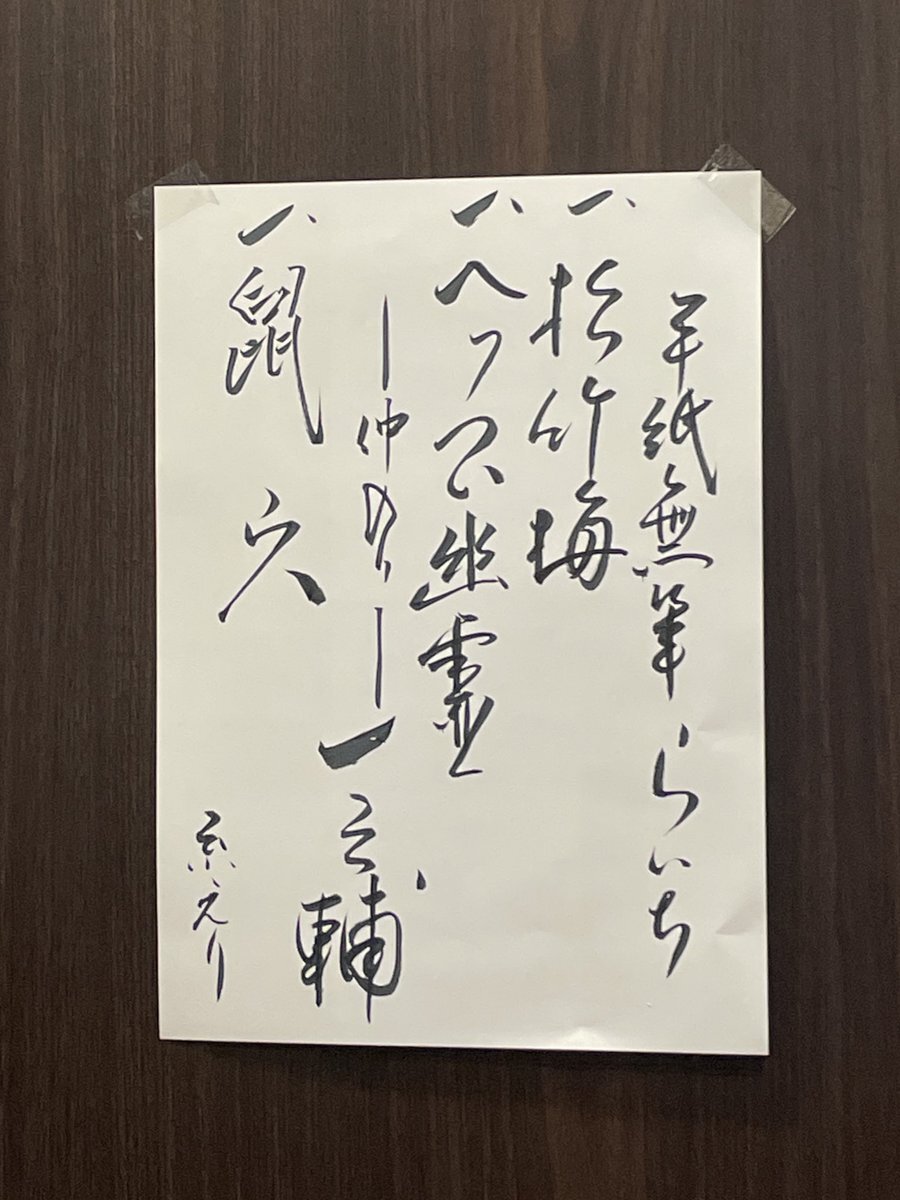 手紙無筆 らいち
一、松竹梅
一、へっつい幽霊
―仲入り― 一之輔
一、鼠穴
えり